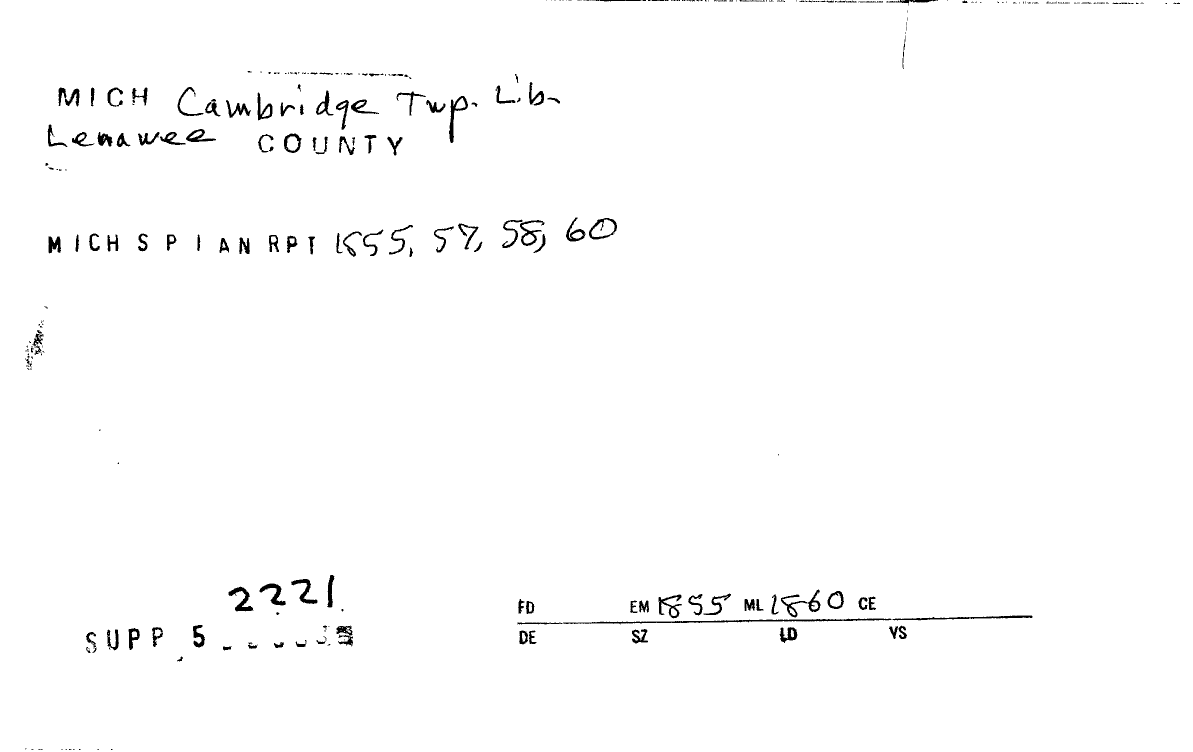 MICH Cambridge Twp. Lib.
Lenawee COUNTY
MICH S P I AN RPT 1855, 57, 58, 60
2221
SUPP 5
FD EM 1855 ML 1860 CE
DE SZ LD VS